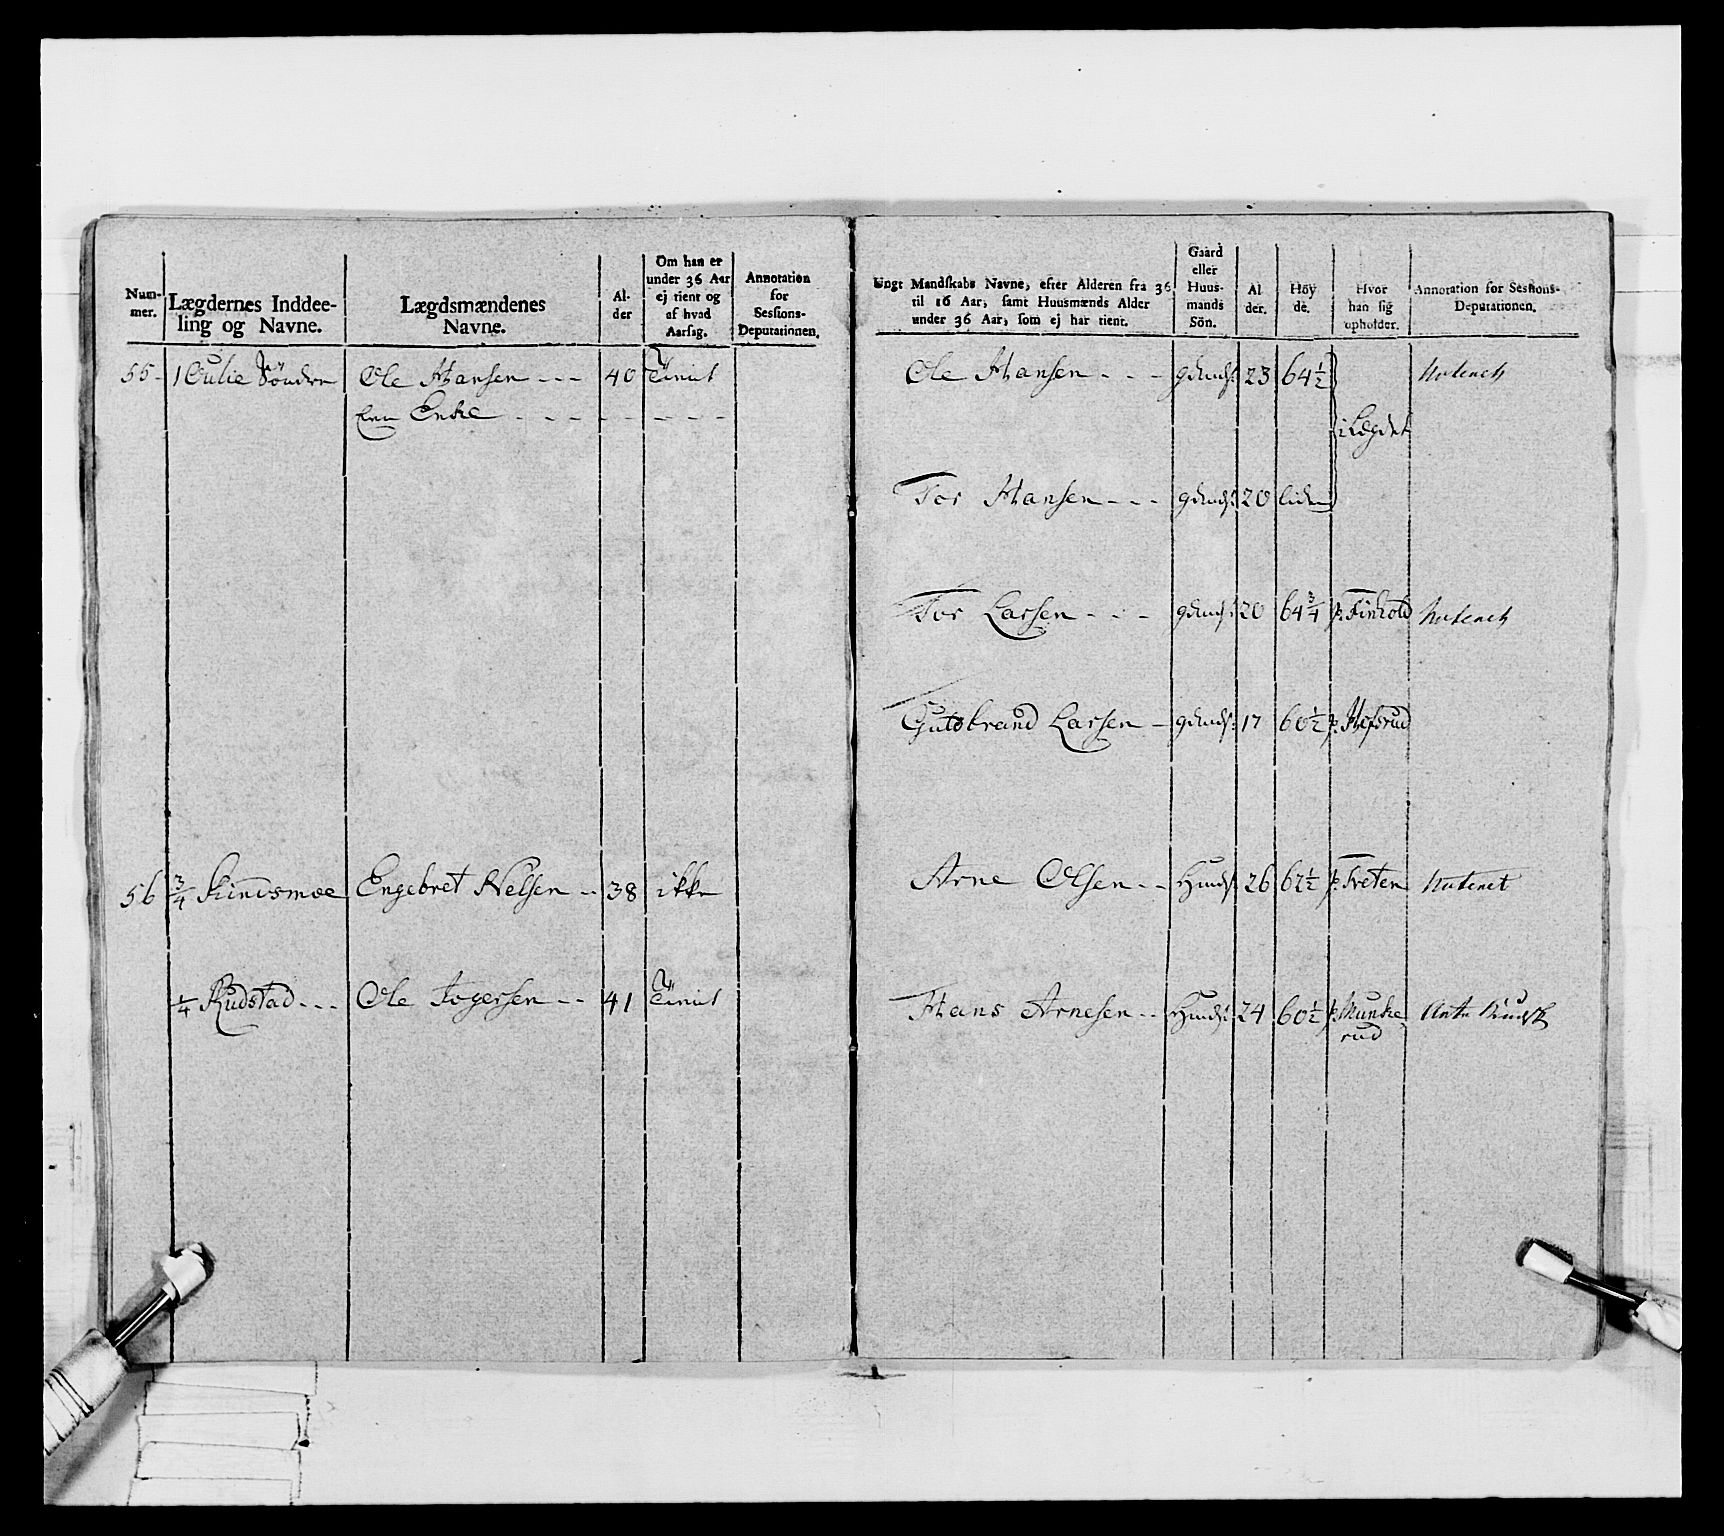 Num-
mer.
Lægdernes Inddee-
ling og Navne.
Lægdsmændenes
Navne.
Al-
der
Om han er
under 36 Aar
ej tient og
af hvad
Aarsag.
Annotation
for
Sessions-
Deputationen.
55. 1 Oulie Söndre Ole Hansen - - - 40 tient
Een Enke - - - - - - - -
56 3/4 Strindsmoe Engebret Nelsen - - 38 ikke
1/4 Rudstad - - - Ole Jogersen - - 41 tient
Ungt Mandskabs Navne, efter Alderen fra 36
til 16 Aar, samt Huusmænds Alder
under 36 Aar, som ej har tient.
Gaard
eller
Huus-
mands
Sön.
Al
der.
Höy
de.
Hvor
han sig
opholder.
Annotation for Sessions-
Deputationen.
Ole Hansen - - - gdmds: 23 64 1/2 Noteret
i Legdet
Tor Hansen - - - gdmds: 20 liden
Tor Larsen - - - gdmds: 20 64 3/4 Noteret
Guldbrand Larsen - gdmds: 17 60 1/2 p: Hofsrud
Arne Olsen - - Hmds: 26 62 1/2 p: Treten Noteret
Hans Arnesen - - Hmds: 24 60 1/2 p: Munke
rud